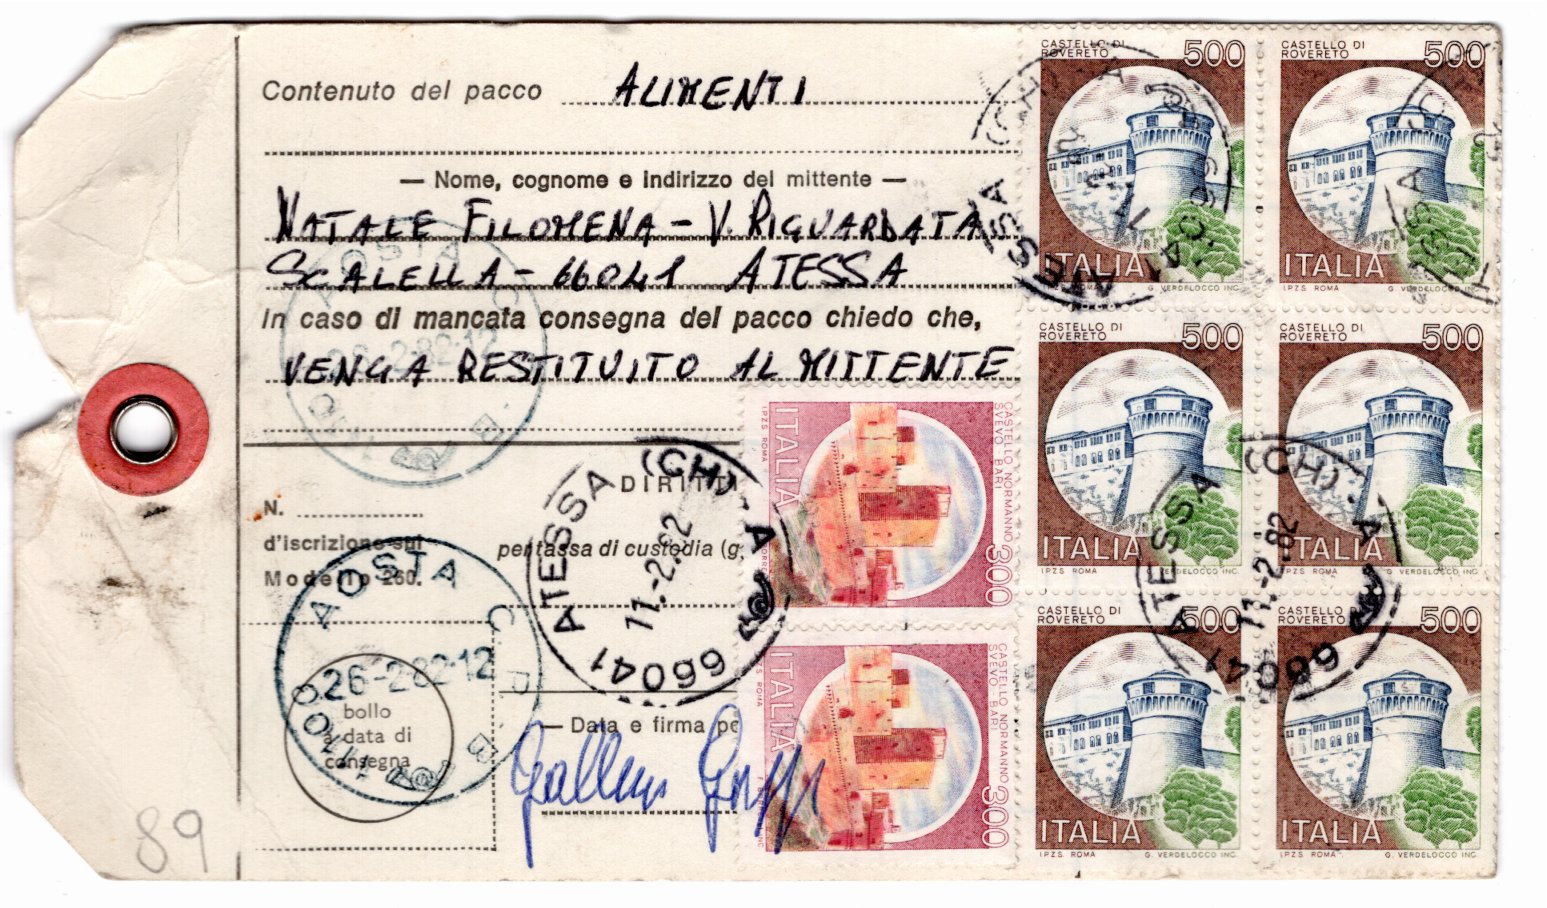 Contenuto del pacco ALIMENTI
— Nome, cognome e indirizzo del mittente —
NATALE FILOMENA - V. RIGUARDATA
SCALELLA - 66041 ATESSA
In caso di mancata consegna del pacco chiedo che,
VENGA RESTITUITO AL MITTENTE
DIRITTI
N.
d'iscrizione sul
Modello 260.
per tassa di custodia (g
— Data e firma pe
bollo
a data di
consegna
89
AOSTA C.P. B
26-2-82·12
ATESSA (CH) - A
11.-2.82
66041
CASTELLO DI
ROVERETO
500
ITALIA
I.P.Z.S. ROMA G. VERDELOCCO INC.
CASTELLO DI
ROVERETO
500
ITALIA
I.P.Z.S. ROMA G. VERDELOCCO INC.
CASTELLO DI
ROVERETO
500
ITALIA
I.P.Z.S. ROMA G. VERDELOCCO INC.
CASTELLO DI
ROVERETO
500
ITALIA
I.P.Z.S. ROMA G. VERDELOCCO INC.
CASTELLO DI
ROVERETO
500
ITALIA
I.P.Z.S. ROMA G. VERDELOCCO INC.
CASTELLO DI
ROVERETO
500
ITALIA
I.P.Z.S. ROMA G. VERDELOCCO INC.
ATESSA (CH) - A
11.-2.82
66041
CASTELLO NORMANNO
SVEVO - BARI
300
ITALIA
I.P.Z.S. ROMA
CASTELLO NORMANNO
SVEVO - BARI
300
ITALIA
I.P.Z.S. ROMA